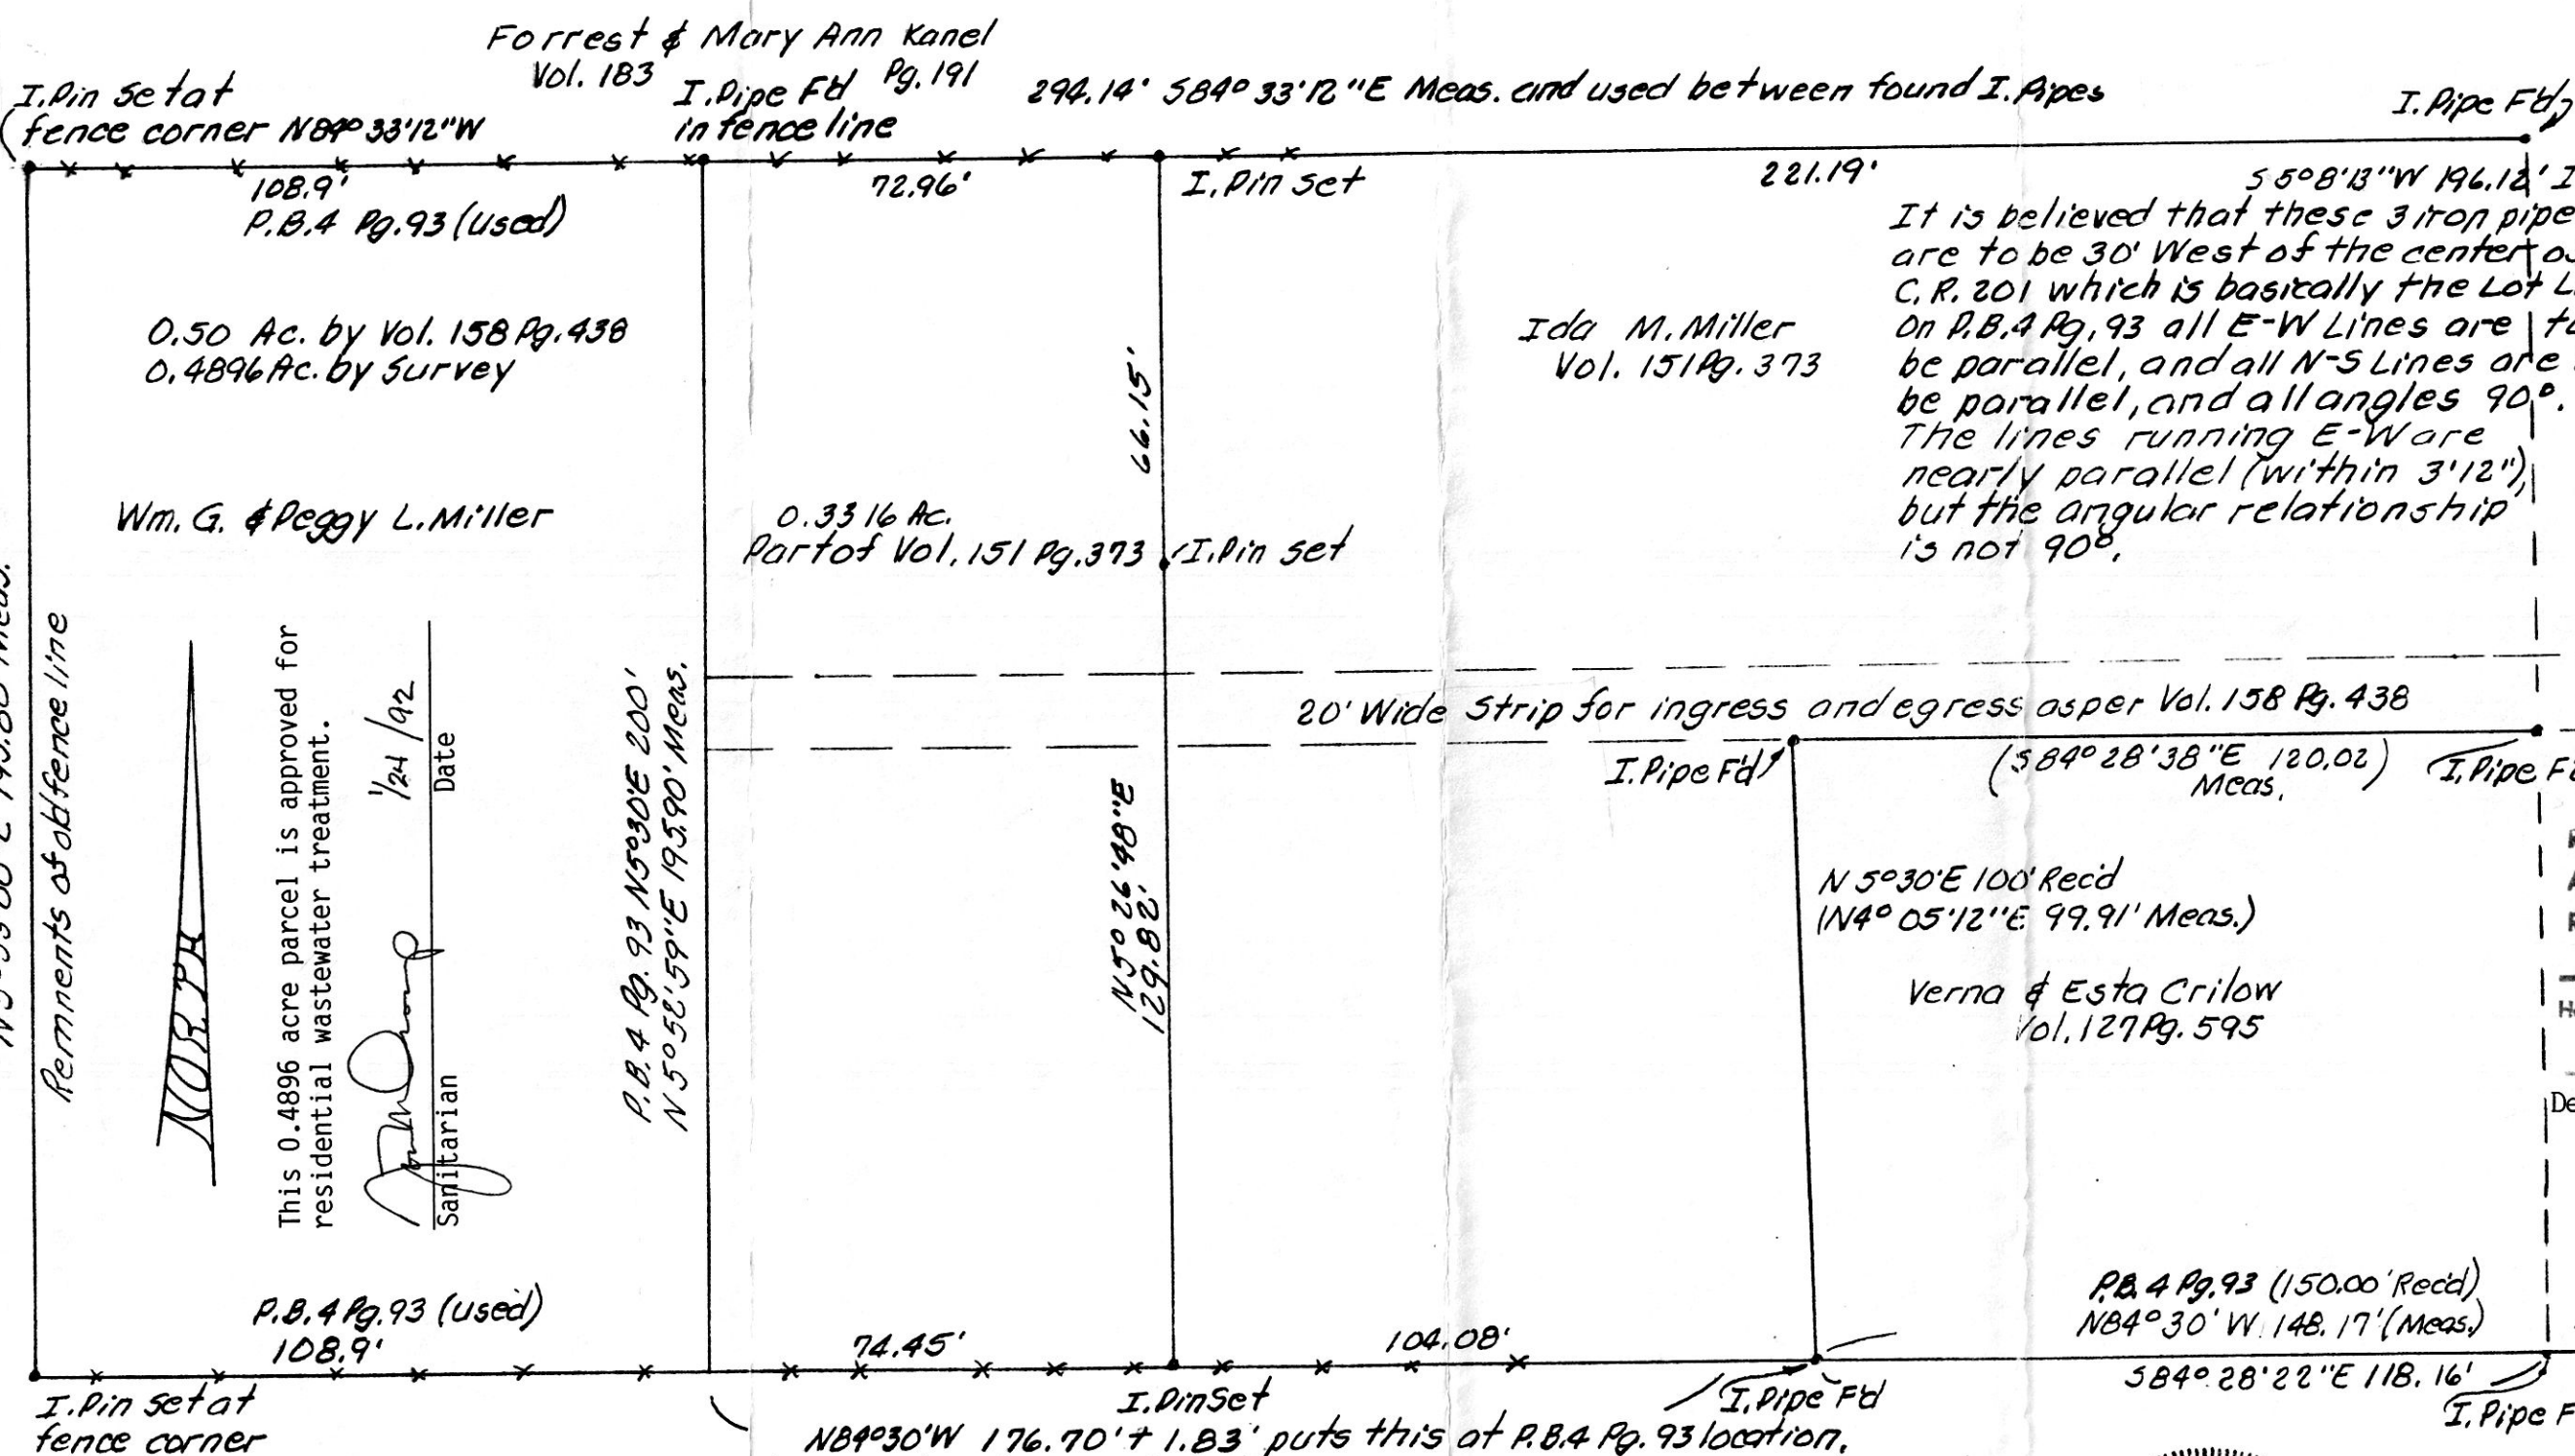 Forrest & Mary Ann Kanel
Vol. 183 Pg. 191
I.Pin Set at
fence corner N84° 33'12"W
I.Pipe F'd
in fence line
294.14' S84° 33'12"E Meas. and used between found I. Pipes
I. Pipe F'd
108.9'
P.B.4 Pg.93 (used)
72.96'
I. Pin set
221.19'
S5°8'13"W 196.12'
It is believed that these 3 iron pipe
are to be 30' West of the center
C.R. 201 which is basically the Lot
On P.B.4 Pg. 93 all E-W Lines are
be parallel, and all N-S Lines are
be parallel, and all angles 90°.
The lines running E-W are
nearly parallel (within 3'12"),
but the angular relationship
is not 90°.
0.50 Ac. by Vol. 158 Pg. 438
0.4896 Ac. by Survey
Ida M. Miller
Vol. 151 Pg. 373
66.15'
Wm. G. & Peggy L. Miller
0.3316 Ac.
Part of Vol. 151 Pg. 373
I.Pin set
Remnents of old fence line
NORTH
This 0.4896 acre parcel is approved for
residential wastewater treatment.
1/24/92
Sanitarian Date
P.B.4 Pg. 93 N5°30'E 200'
N5°52'59"E 195.90' Meas.
20' Wide Strip for ingress and egress as per Vol. 158 Pg. 438
I.Pipe F'd
(S84° 28'38"E 120.02)
Meas.
I. Pipe
N5° 26'48"E
129.82'
N 5°30'E 100' Rec'd
(N4° 05'12"E 99.91' Meas.)
Verna & Esta Crilow
Vol. 127 Pg. 595
P.B.4 Pg. 93 (used)
108.9'
74.45'
104.08'
P.B. 4 Pg. 93 (150.00' Rec'd)
N84° 30' W 148.17' (Meas.)
S84° 28'22"E 118.16'
I.Pin set at
fence corner
I.Pin Set
I.Pipe F'd
I. Pipe
N84°30'W 176.70' + 1.83' puts this at P.B.4 Pg. 93 location.